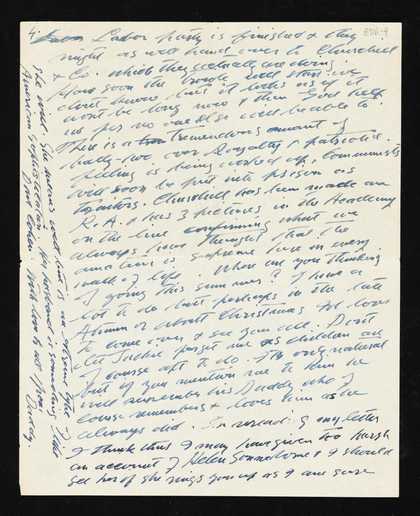 4.
Labor party is finished & they
might as well hand over to Churchill
& Co. which they actually are doing.
How soon the trouble will start we
don't know, but it looks as if it
wont be long now & then God help
us for no one else will be able to.
There is a tremendous amount of
bally-hoo over Royalty & patriotic
feeling is being worked up, Communists
will soon be put into prison as
traitors. Churchill has been made an
R.A. & has 3 pictures in the Academy
on the line confirming what we
always have thought that the
amateur is supreme here in every
walk of life. What are you thinking
of doing this summer? I have a
lot to do but perhaps in the late
Autumn or about Christmas I'd love
to come over & see you all. Dont
let Jackie forget me as children are
of course apt to do. It's only natural
but if you mention me to him he
will remember his Daddy who of
course remembers & loves him as he
always did. In rereading my letter
I think that I may have given too harsh
an account of Helen & I should
see her if she rings you up as I am sure
she would. She means well but is an extreme type of
American sophistication. Her husband is something
Dont Bother. With love to you